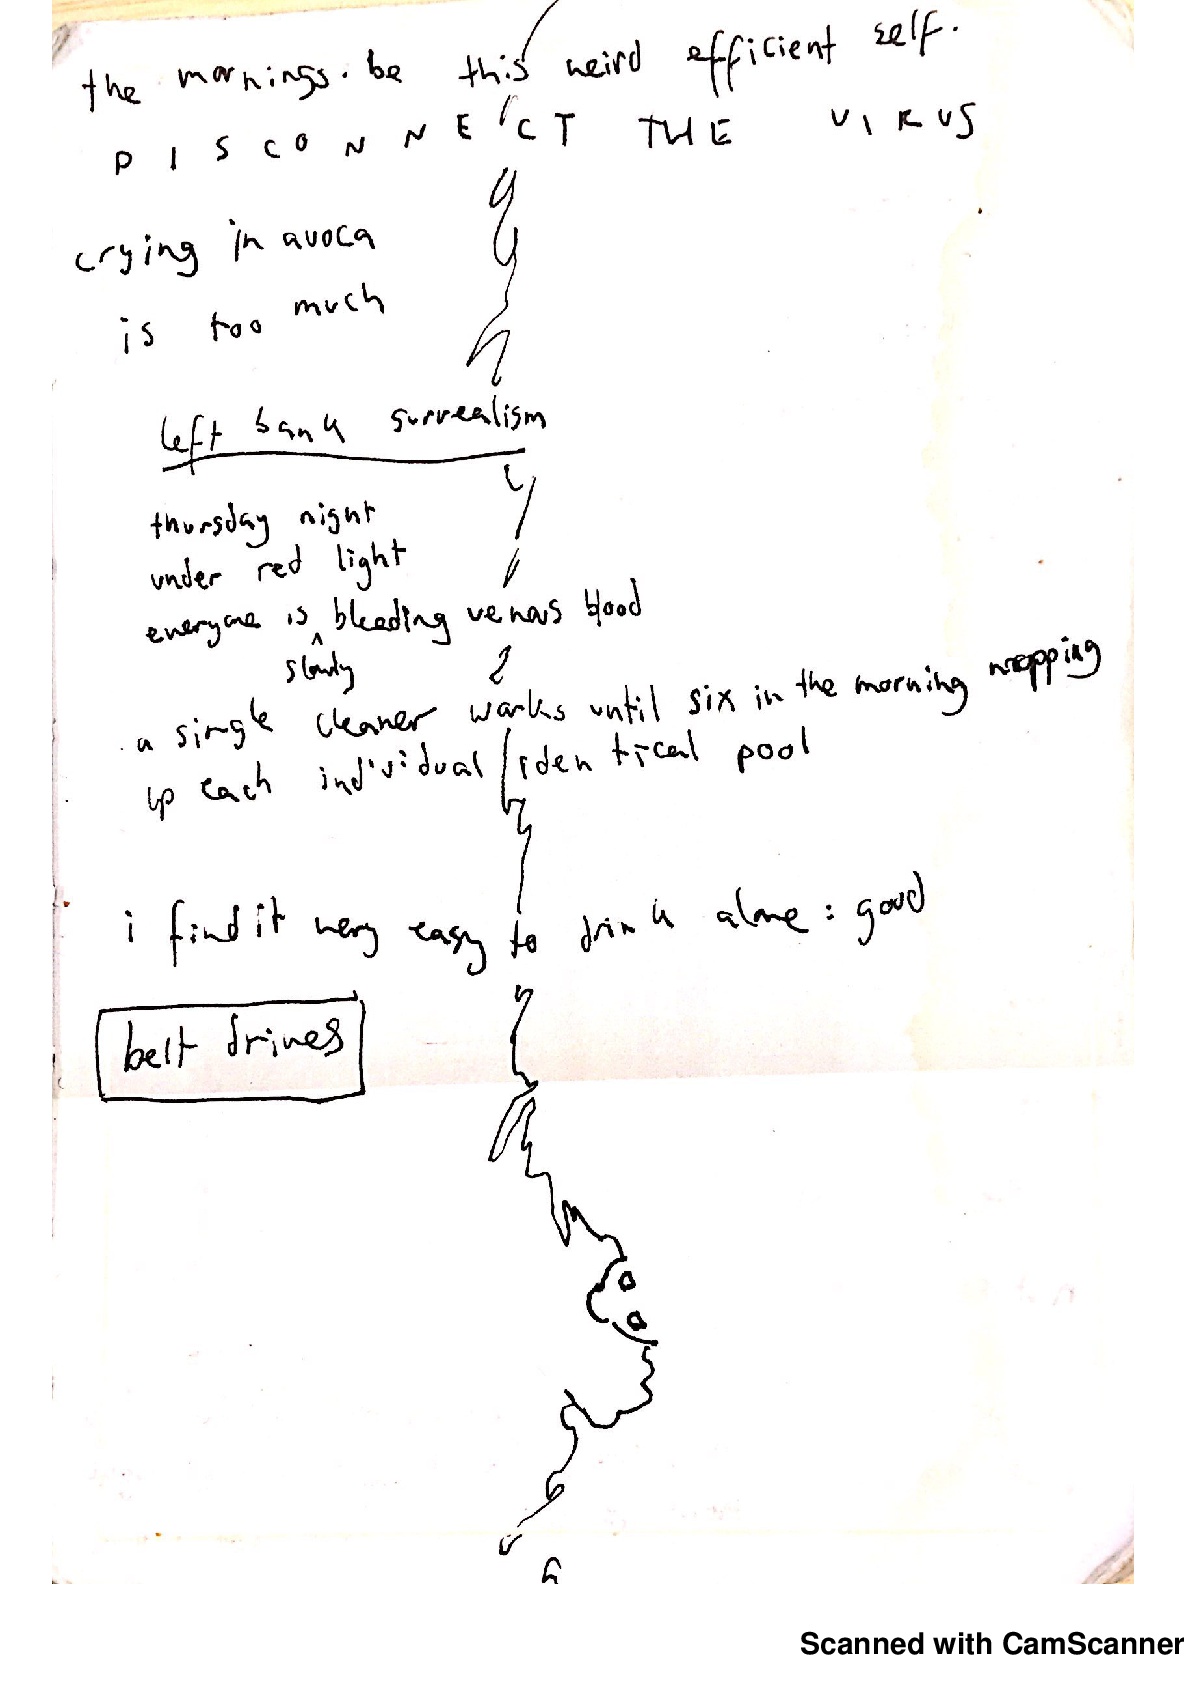 the mornings. be this weird efficient self.
DISCONNECT THE VIRUS
crying in avoca
is too much
left bank surrealism
thursday night
under red light
everyone is bleeding venous blood
^
slowly
a single cleaner works until six in the morning mopping
up each individual/identical pool
i find it very easy to drink alone: good
belt drives
Scanned with CamScanner